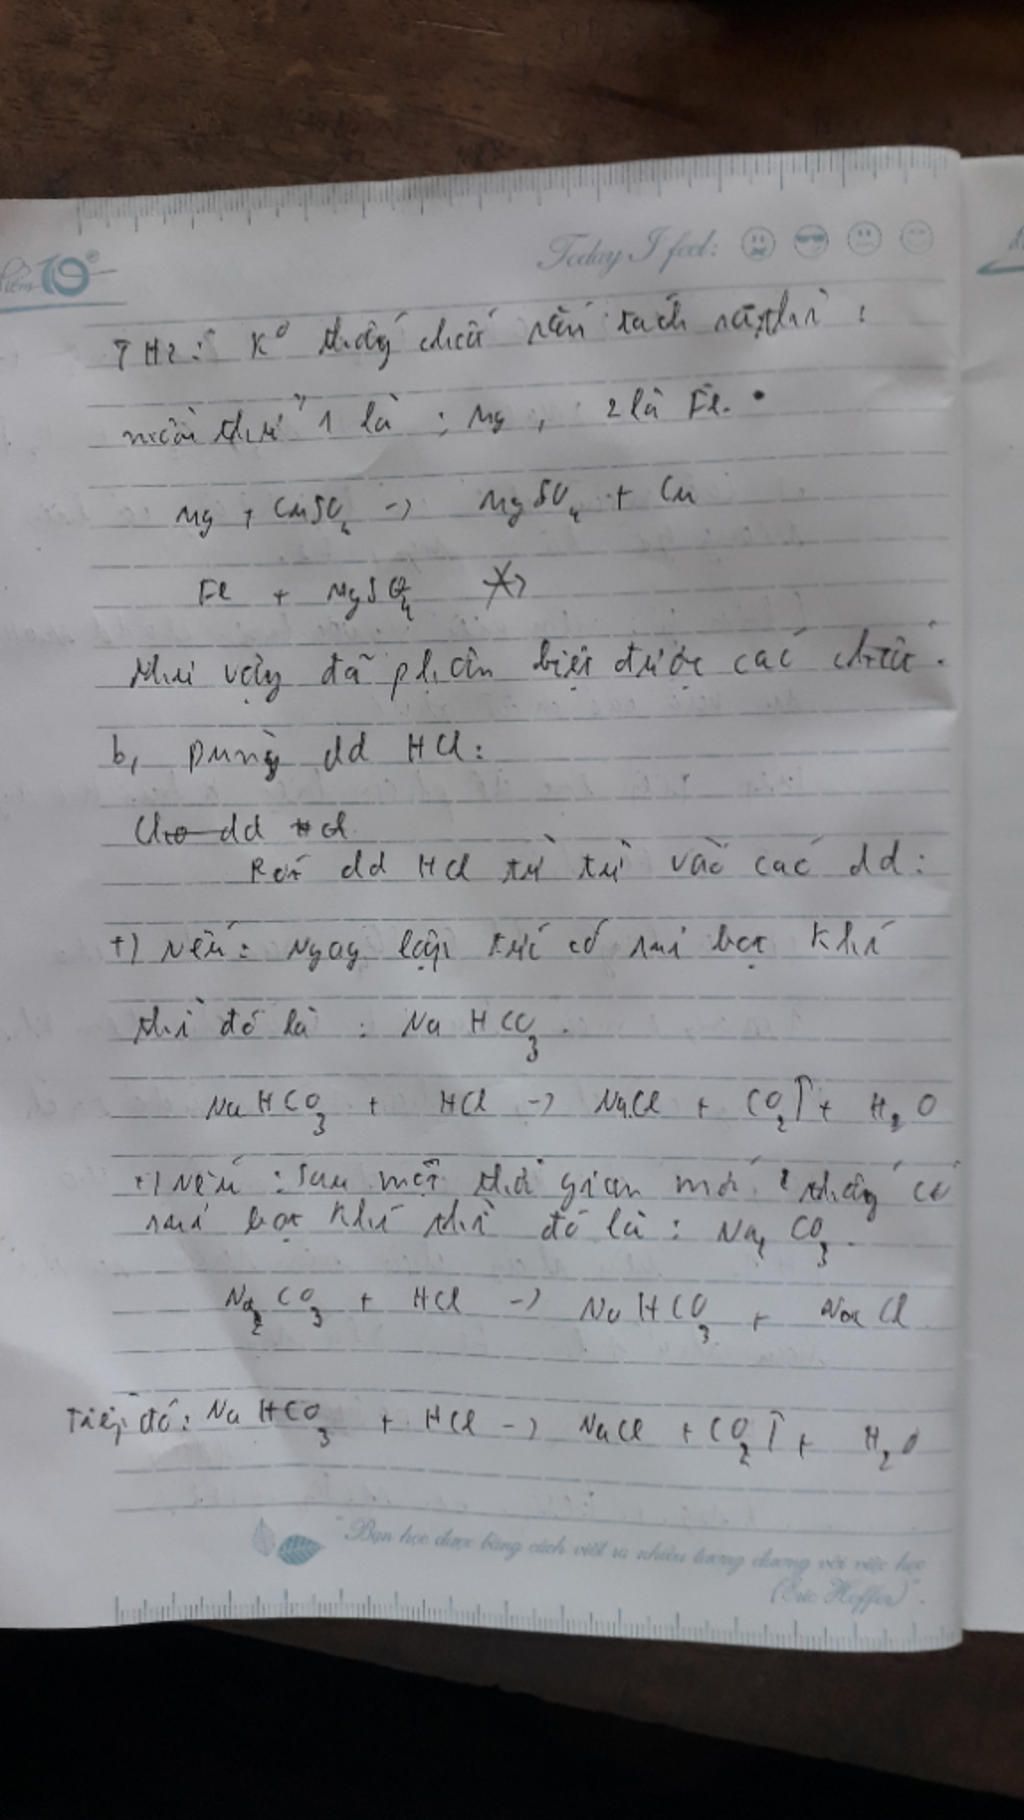 điểm 10
Today I feel:
TH2: K° thấy chất rắn tách ra, thì :
mẫu thử 1 là : Mg , 2 là Fe.
Mg + CuSO4 -> MgSO4 + Cu
Fe + MgSO4
Như vậy đã phân biệt được các chất.
b, Dùng dd HCl:
Cho dd HCl
Rót dd HCl từ từ vào các dd:
+) Nếu: Ngay lập tức có sủi bọt khí
thì đó là : NaHCO3.
NaHCO3 + HCl -> NaCl + CO2↑ + H2O
+) Nếu : Sau một thời gian mới thấy có
sủi bọt khí thì đó là : Na2CO3.
Na2CO3 + HCl -> NaHCO3 + NaCl
Tiếp đó: NaHCO3 + HCl -> NaCl + CO2↑ + H2O
"Bạn học được bằng cách viết ra nhiều tương đương với việc học
(Eric Hoffer)".